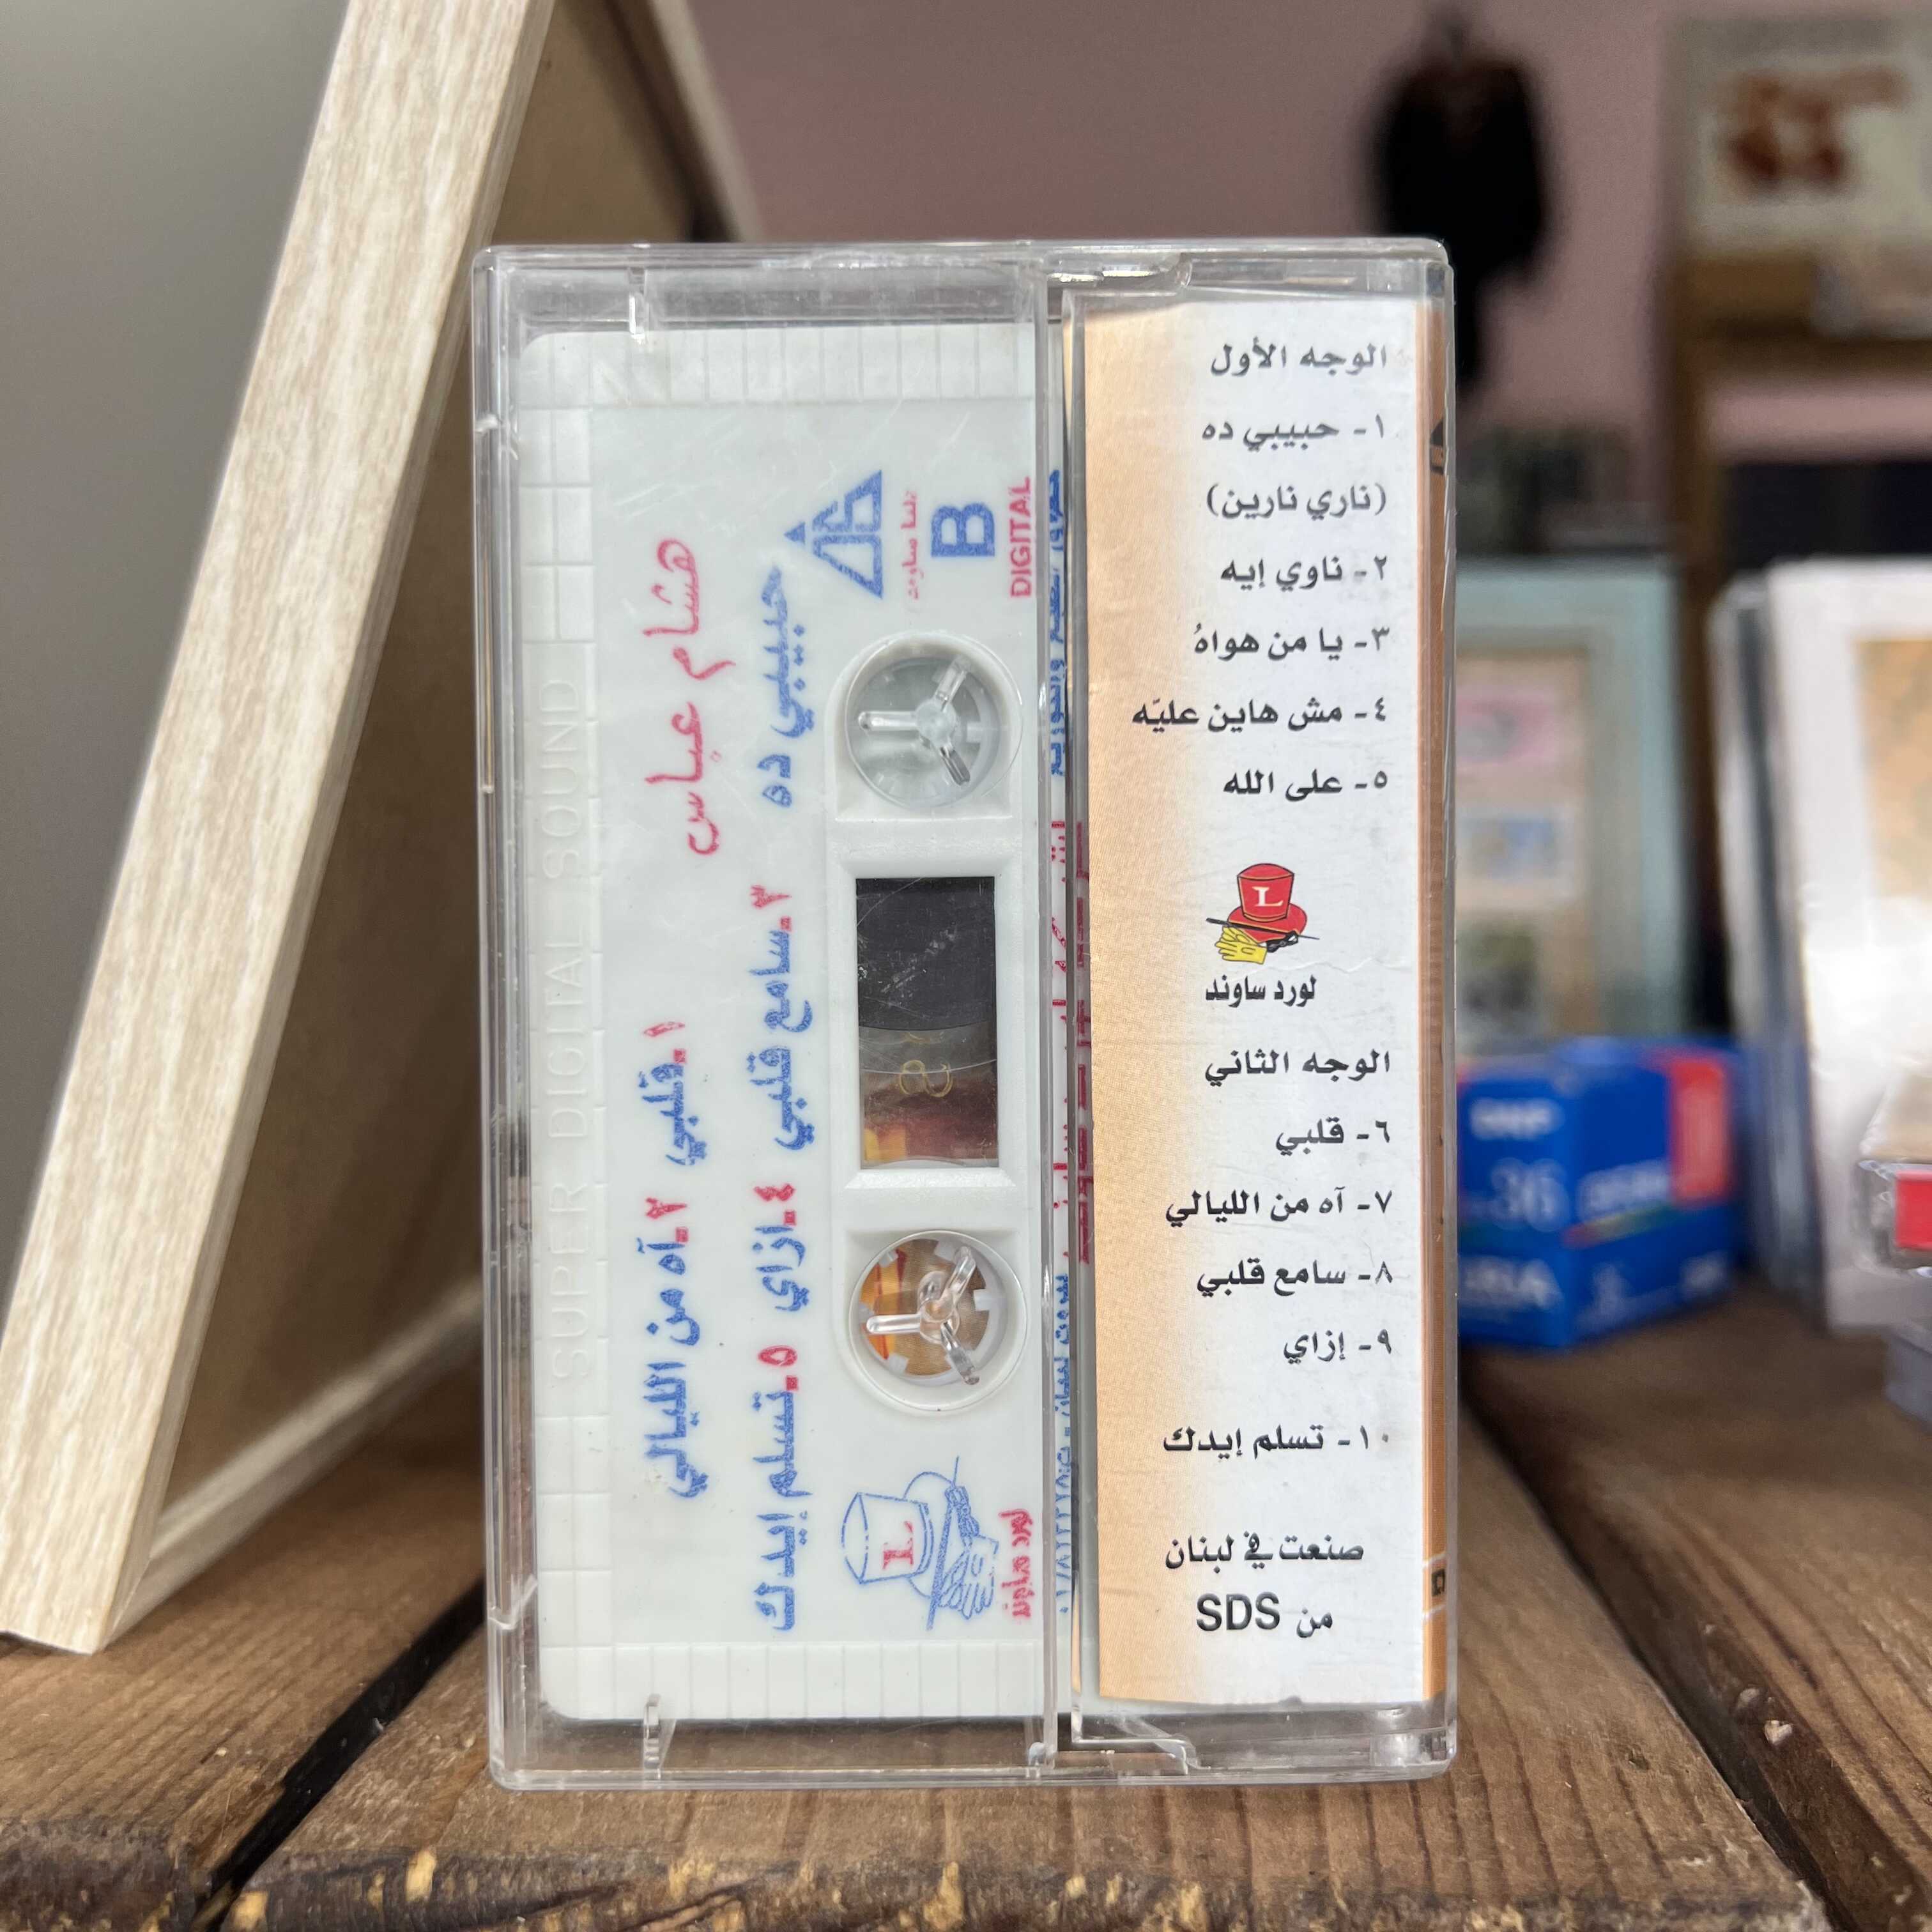 الوجه الأول
١- حبيبي ده
(ناري نارين)
٢- ناوي إيه
٣- يا من هواهُ
٤- مش هاين عليّه
٥- على الله
L
لورد ساوند
الوجه الثاني
٦- قلبي
٧- آه من الليالي
٨- سامع قلبي
٩- إزاي
١٠- تسلم إيدك
صنعت في لبنان
من SDS
هشام عباس
حبيبي ده
١ـ قلبي ٢ـ آه من الليالي
٣ـ سامع قلبي ٤ـ ازاي ٥ـ تسلم إيدك
دلتا ساوند
B
DIGITAL
L
لورد ساوند
SUPER DIGITAL SOUND
36